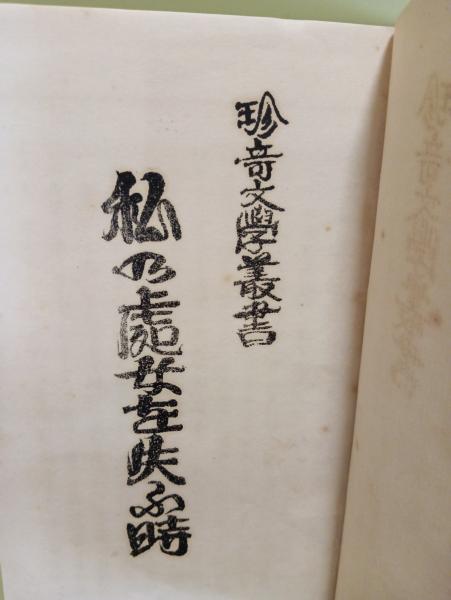 珍奇文學叢書
私の處女を失ふ時